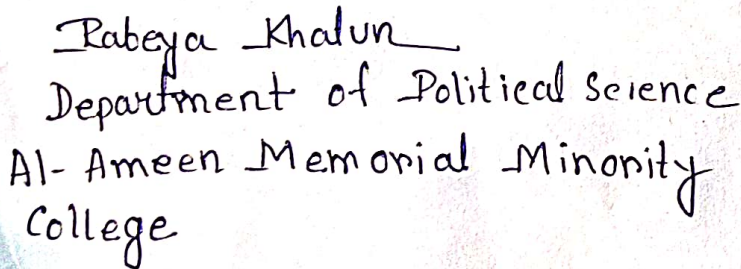 Rabeya Khatun
Department of Political Science
Al-Ameen Memorial Minority
College